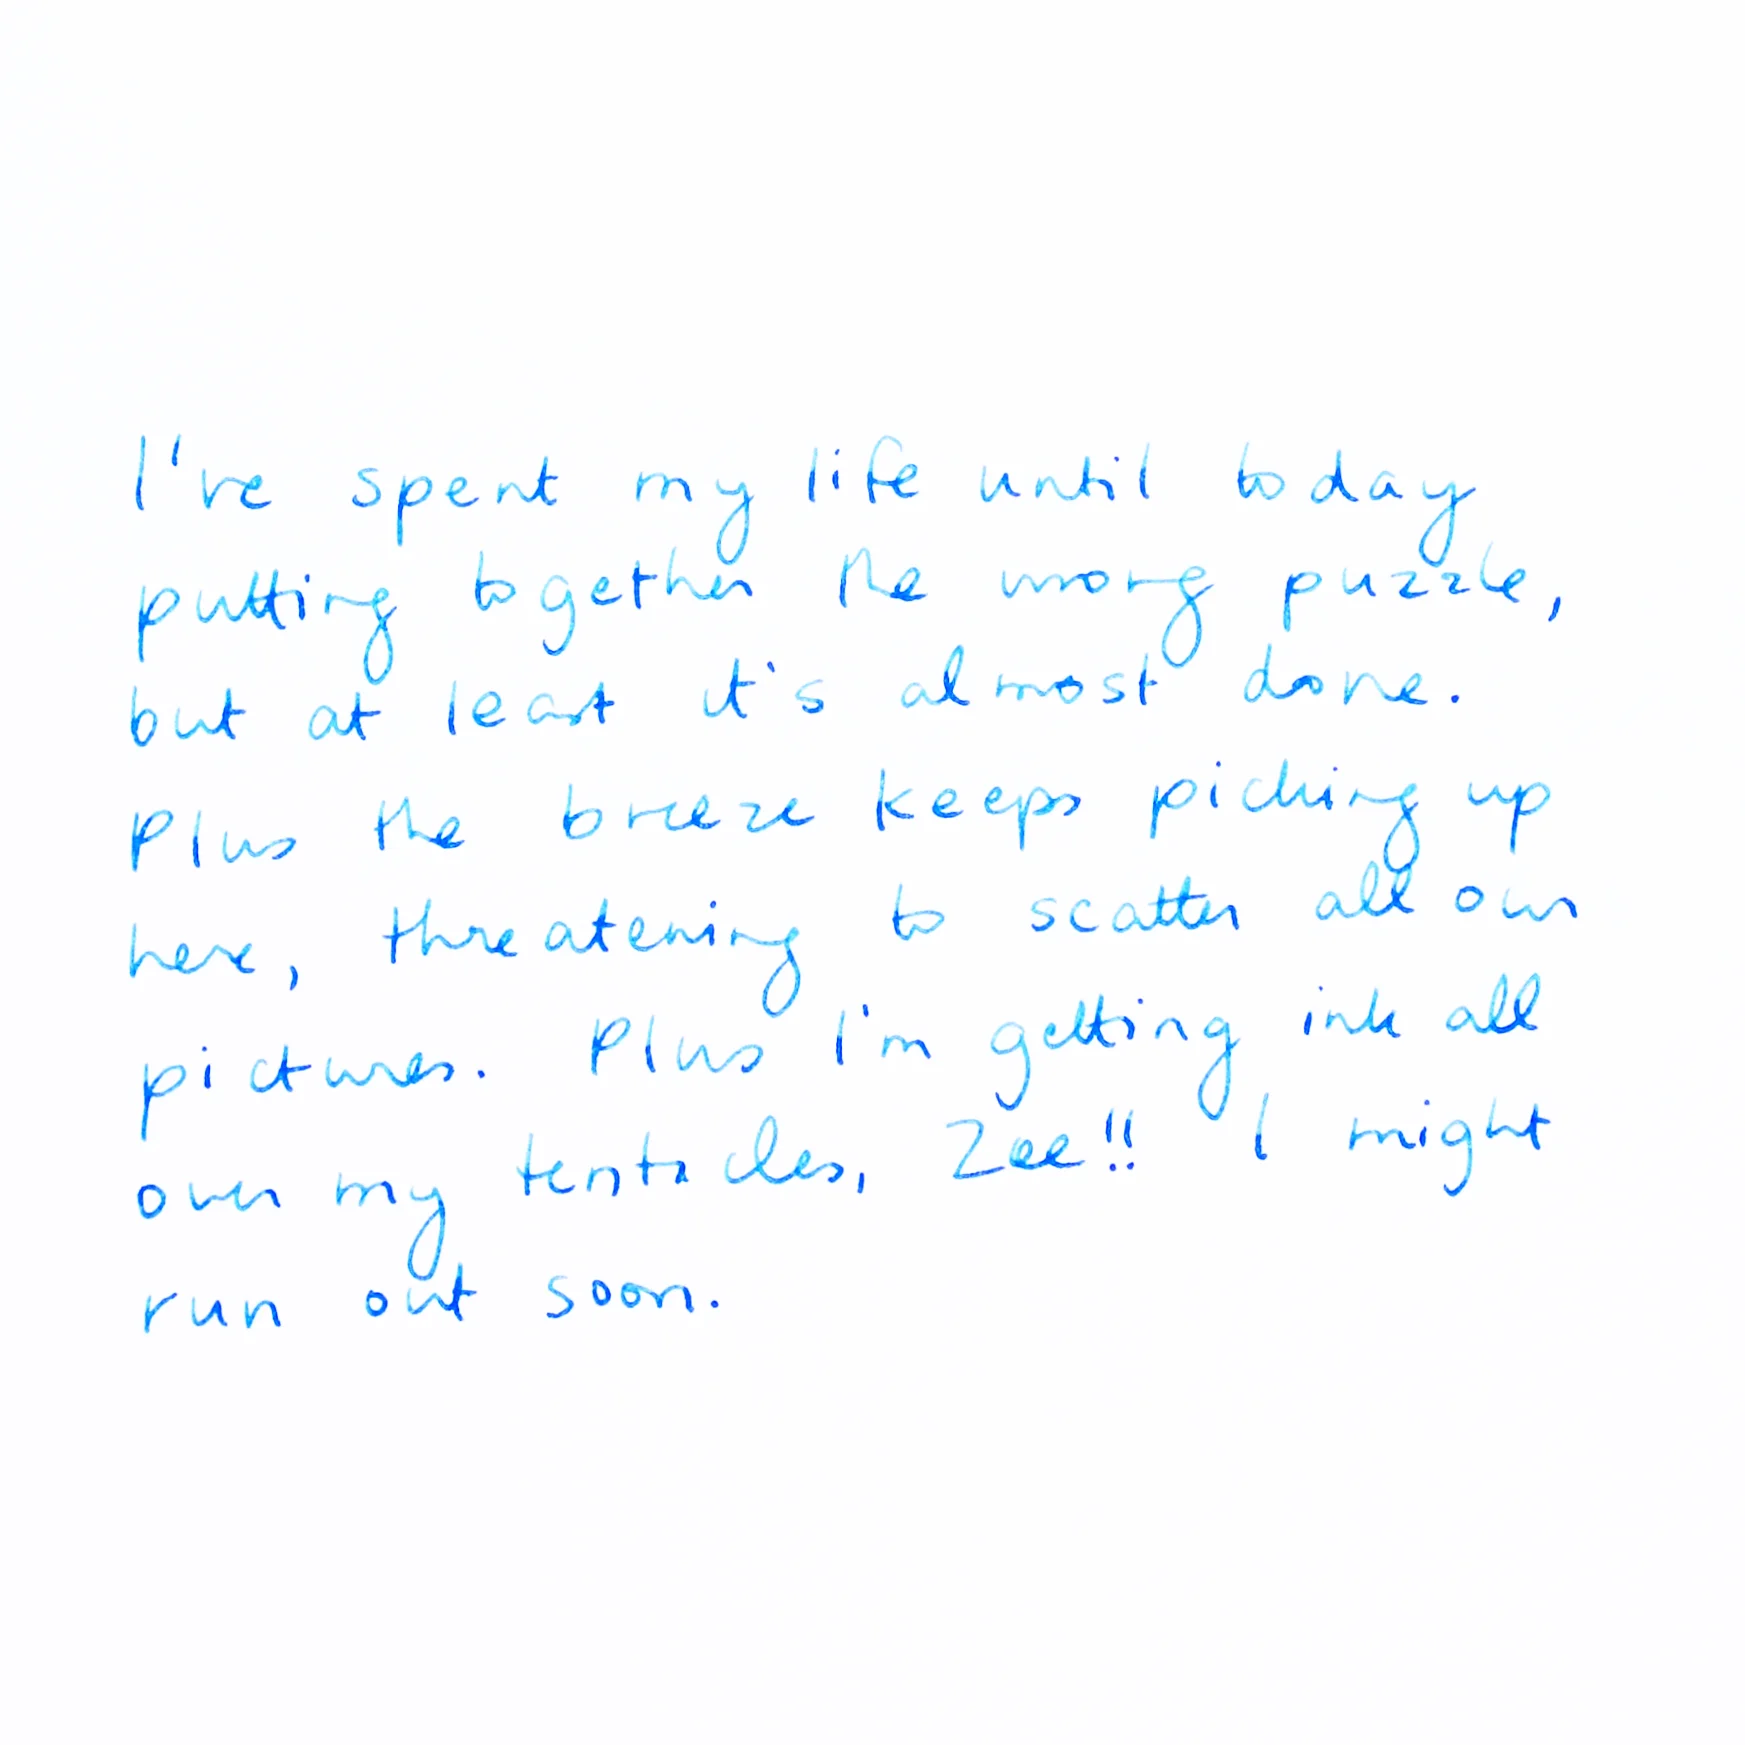 I've spent my life until today
putting together the wrong puzzle,
but at least it's almost done.
Plus the breeze keeps picking up
here, threatening to scatter all our
pictures. Plus I'm getting ink all
over my tentacles, Zee!! I might
run out soon.